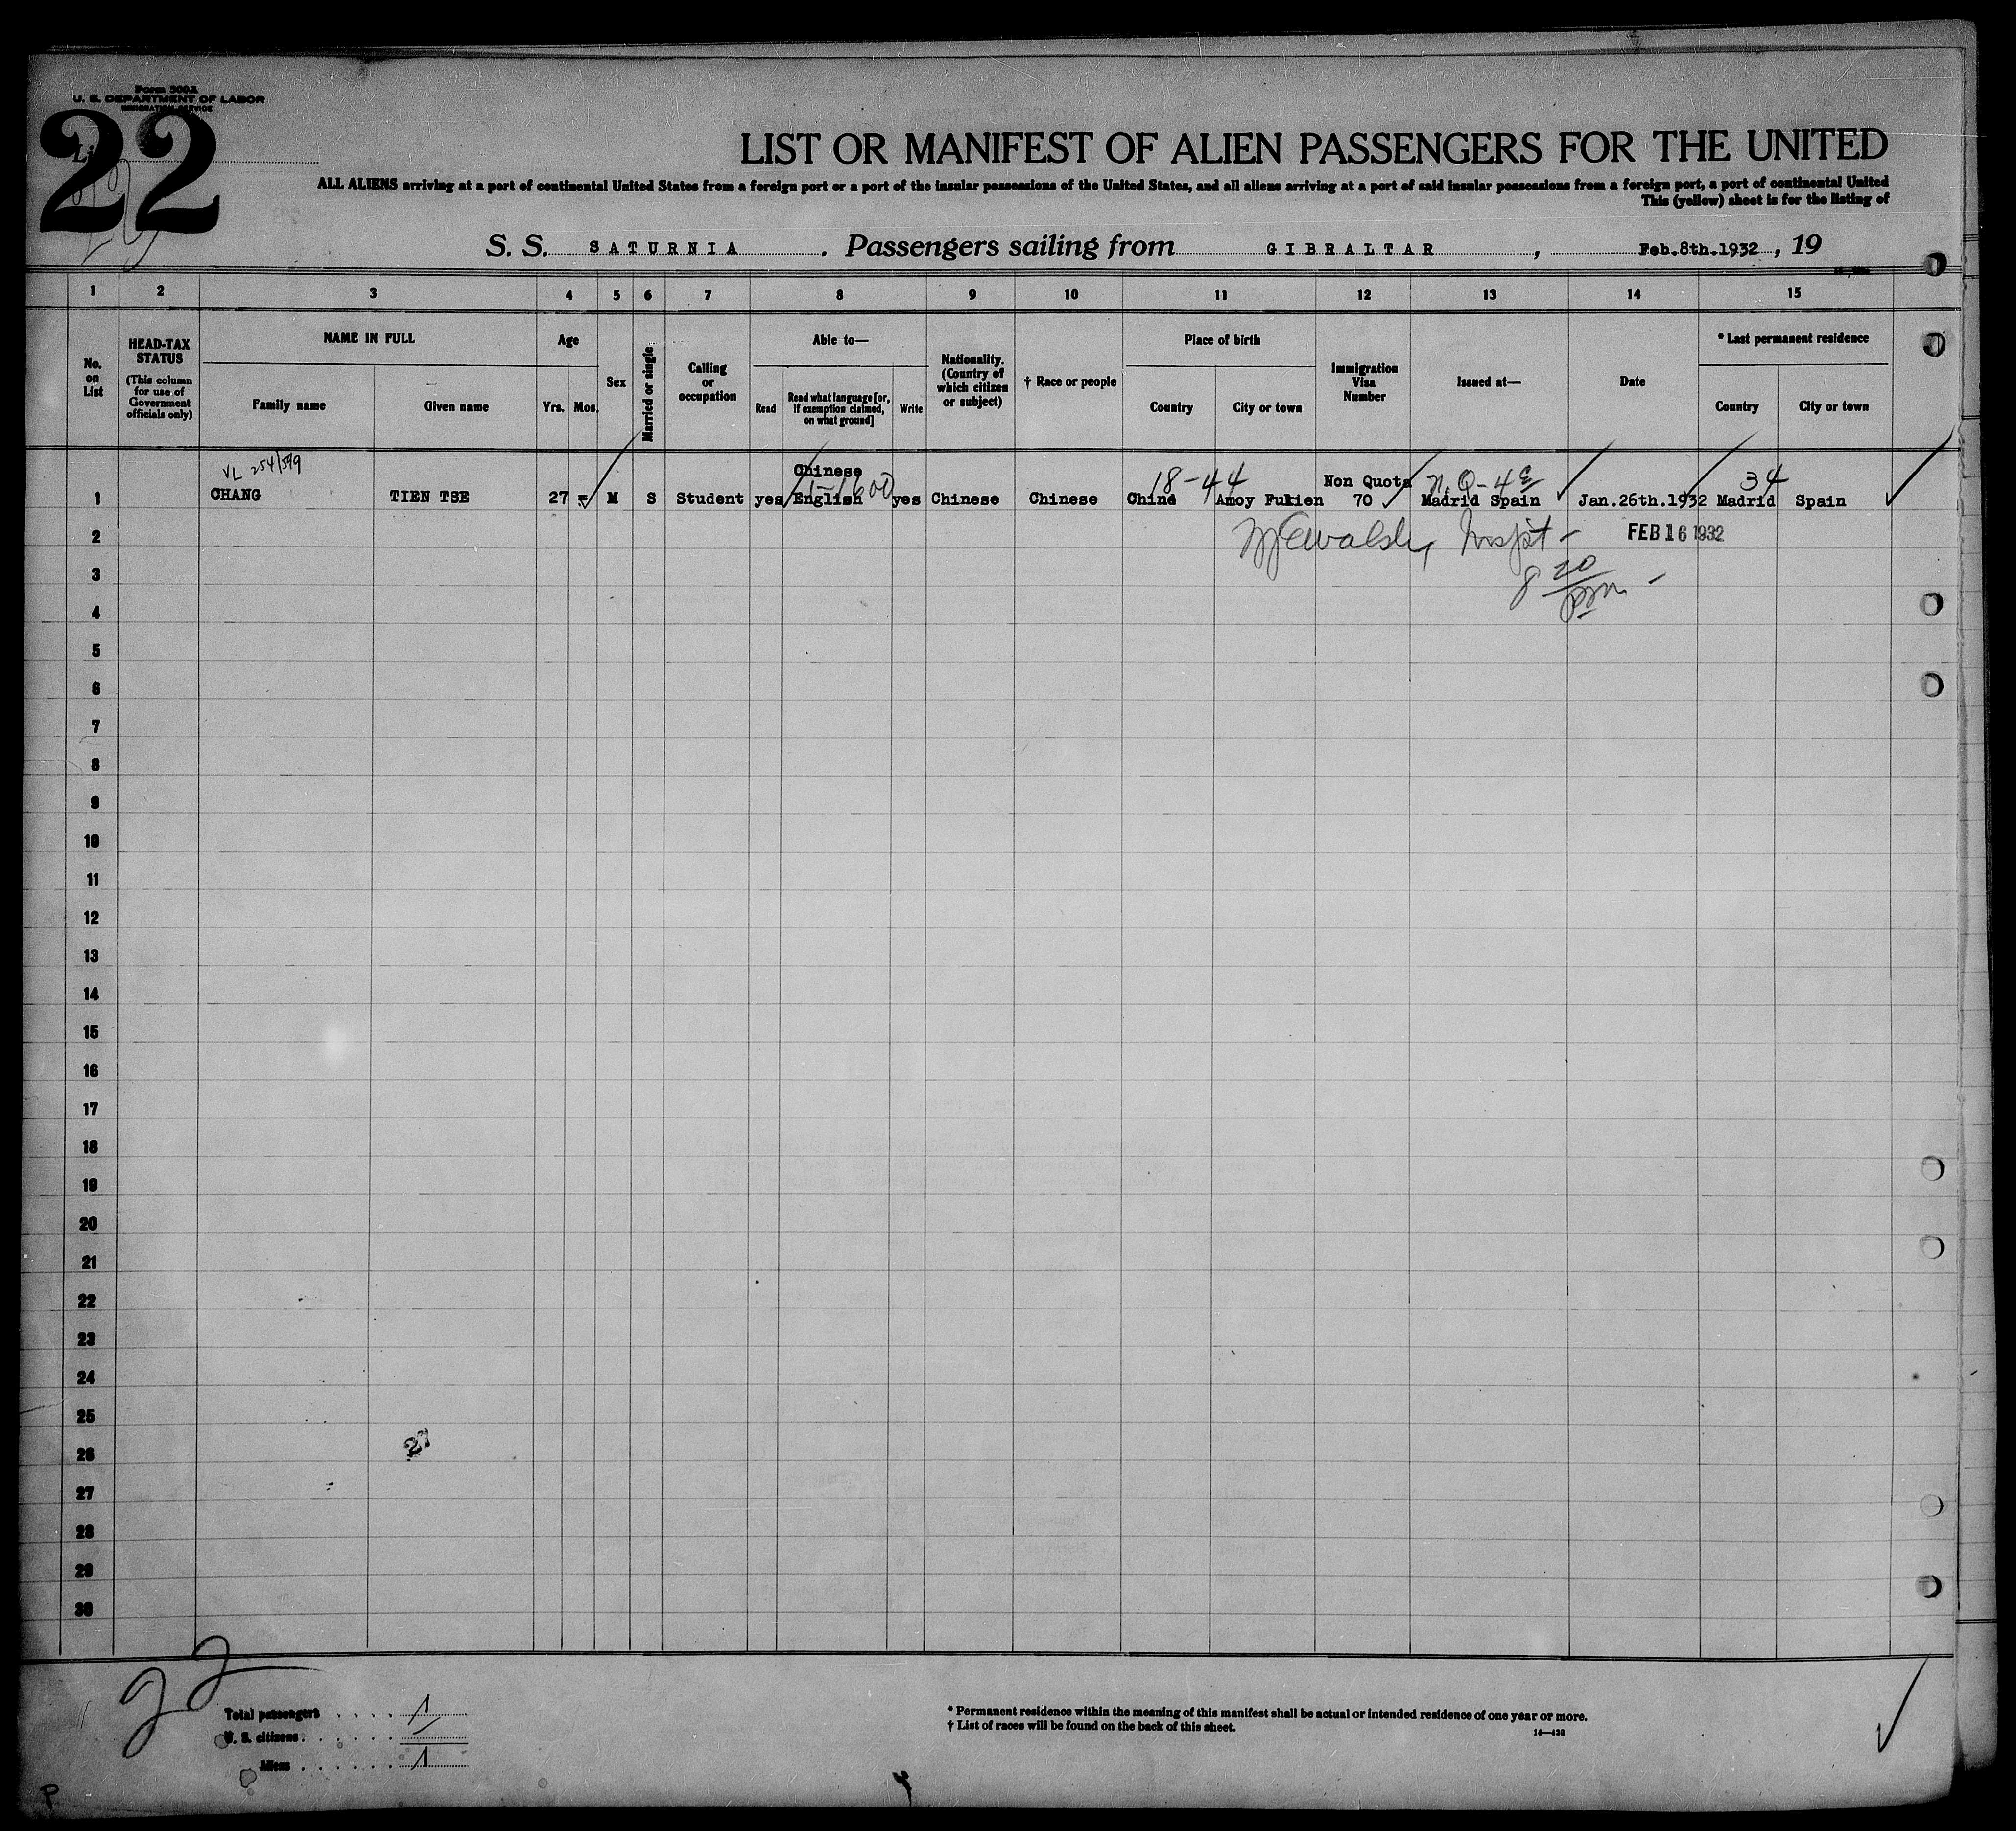 Form 500A
U. S. DEPARTMENT OF LABOR
IMMIGRATION SERVICE
22
LIST OR MANIFEST OF ALIEN PASSENGERS FOR THE UNITED
ALL ALIENS arriving at a port of continental United States from a foreign port or a port of the insular possessions of the United States, and all aliens arriving at a port of said insular possessions from a foreign port, a port of continental United
This (yellow) sheet is for the listing of
S. S. SATURNIA . Passengers sailing from GIBRALTAR , Feb.8th.1932 , 19
1 2 3 4 5 6 7 8 9 10 11 12 13 14 15
No. on List
HEAD-TAX STATUS
(This column for use of Government officials only)
NAME IN FULL
Family name Given name
Age
Yrs. Mos.
Sex
Married or single
Calling or occupation
Able to—
Read
Read what language [or, if exemption claimed, on what ground]
Write
Nationality. (Country of which citizen or subject)
† Race or people
Place of birth
Country City or town
Immigration Visa Number
Issued at—
Date
* Last permanent residence
Country City or town
VL 254/599
Chinese 18-44 Non Quota N.Q-4E 34
1 CHANG TIEN TSE 27 - M S Student yes English yes Chinese Chinese Chine Amoy Fukien 70 Madrid Spain Jan.26th.1932 Madrid Spain
2 FEB 16 1932
3 8 20
pm
4
5
6
7
8
9
10
11
12
13
14
15
16
17
18
19
20
21
22
23
24
25
26
27
28
29
30
22
Total passengers . . . . 1
U. S. citizens . . . . . . —
Aliens . . . . . . 1
* Permanent residence within the meaning of this manifest shall be actual or intended residence of one year or more.
† List of races will be found on the back of this sheet.
14—430
P